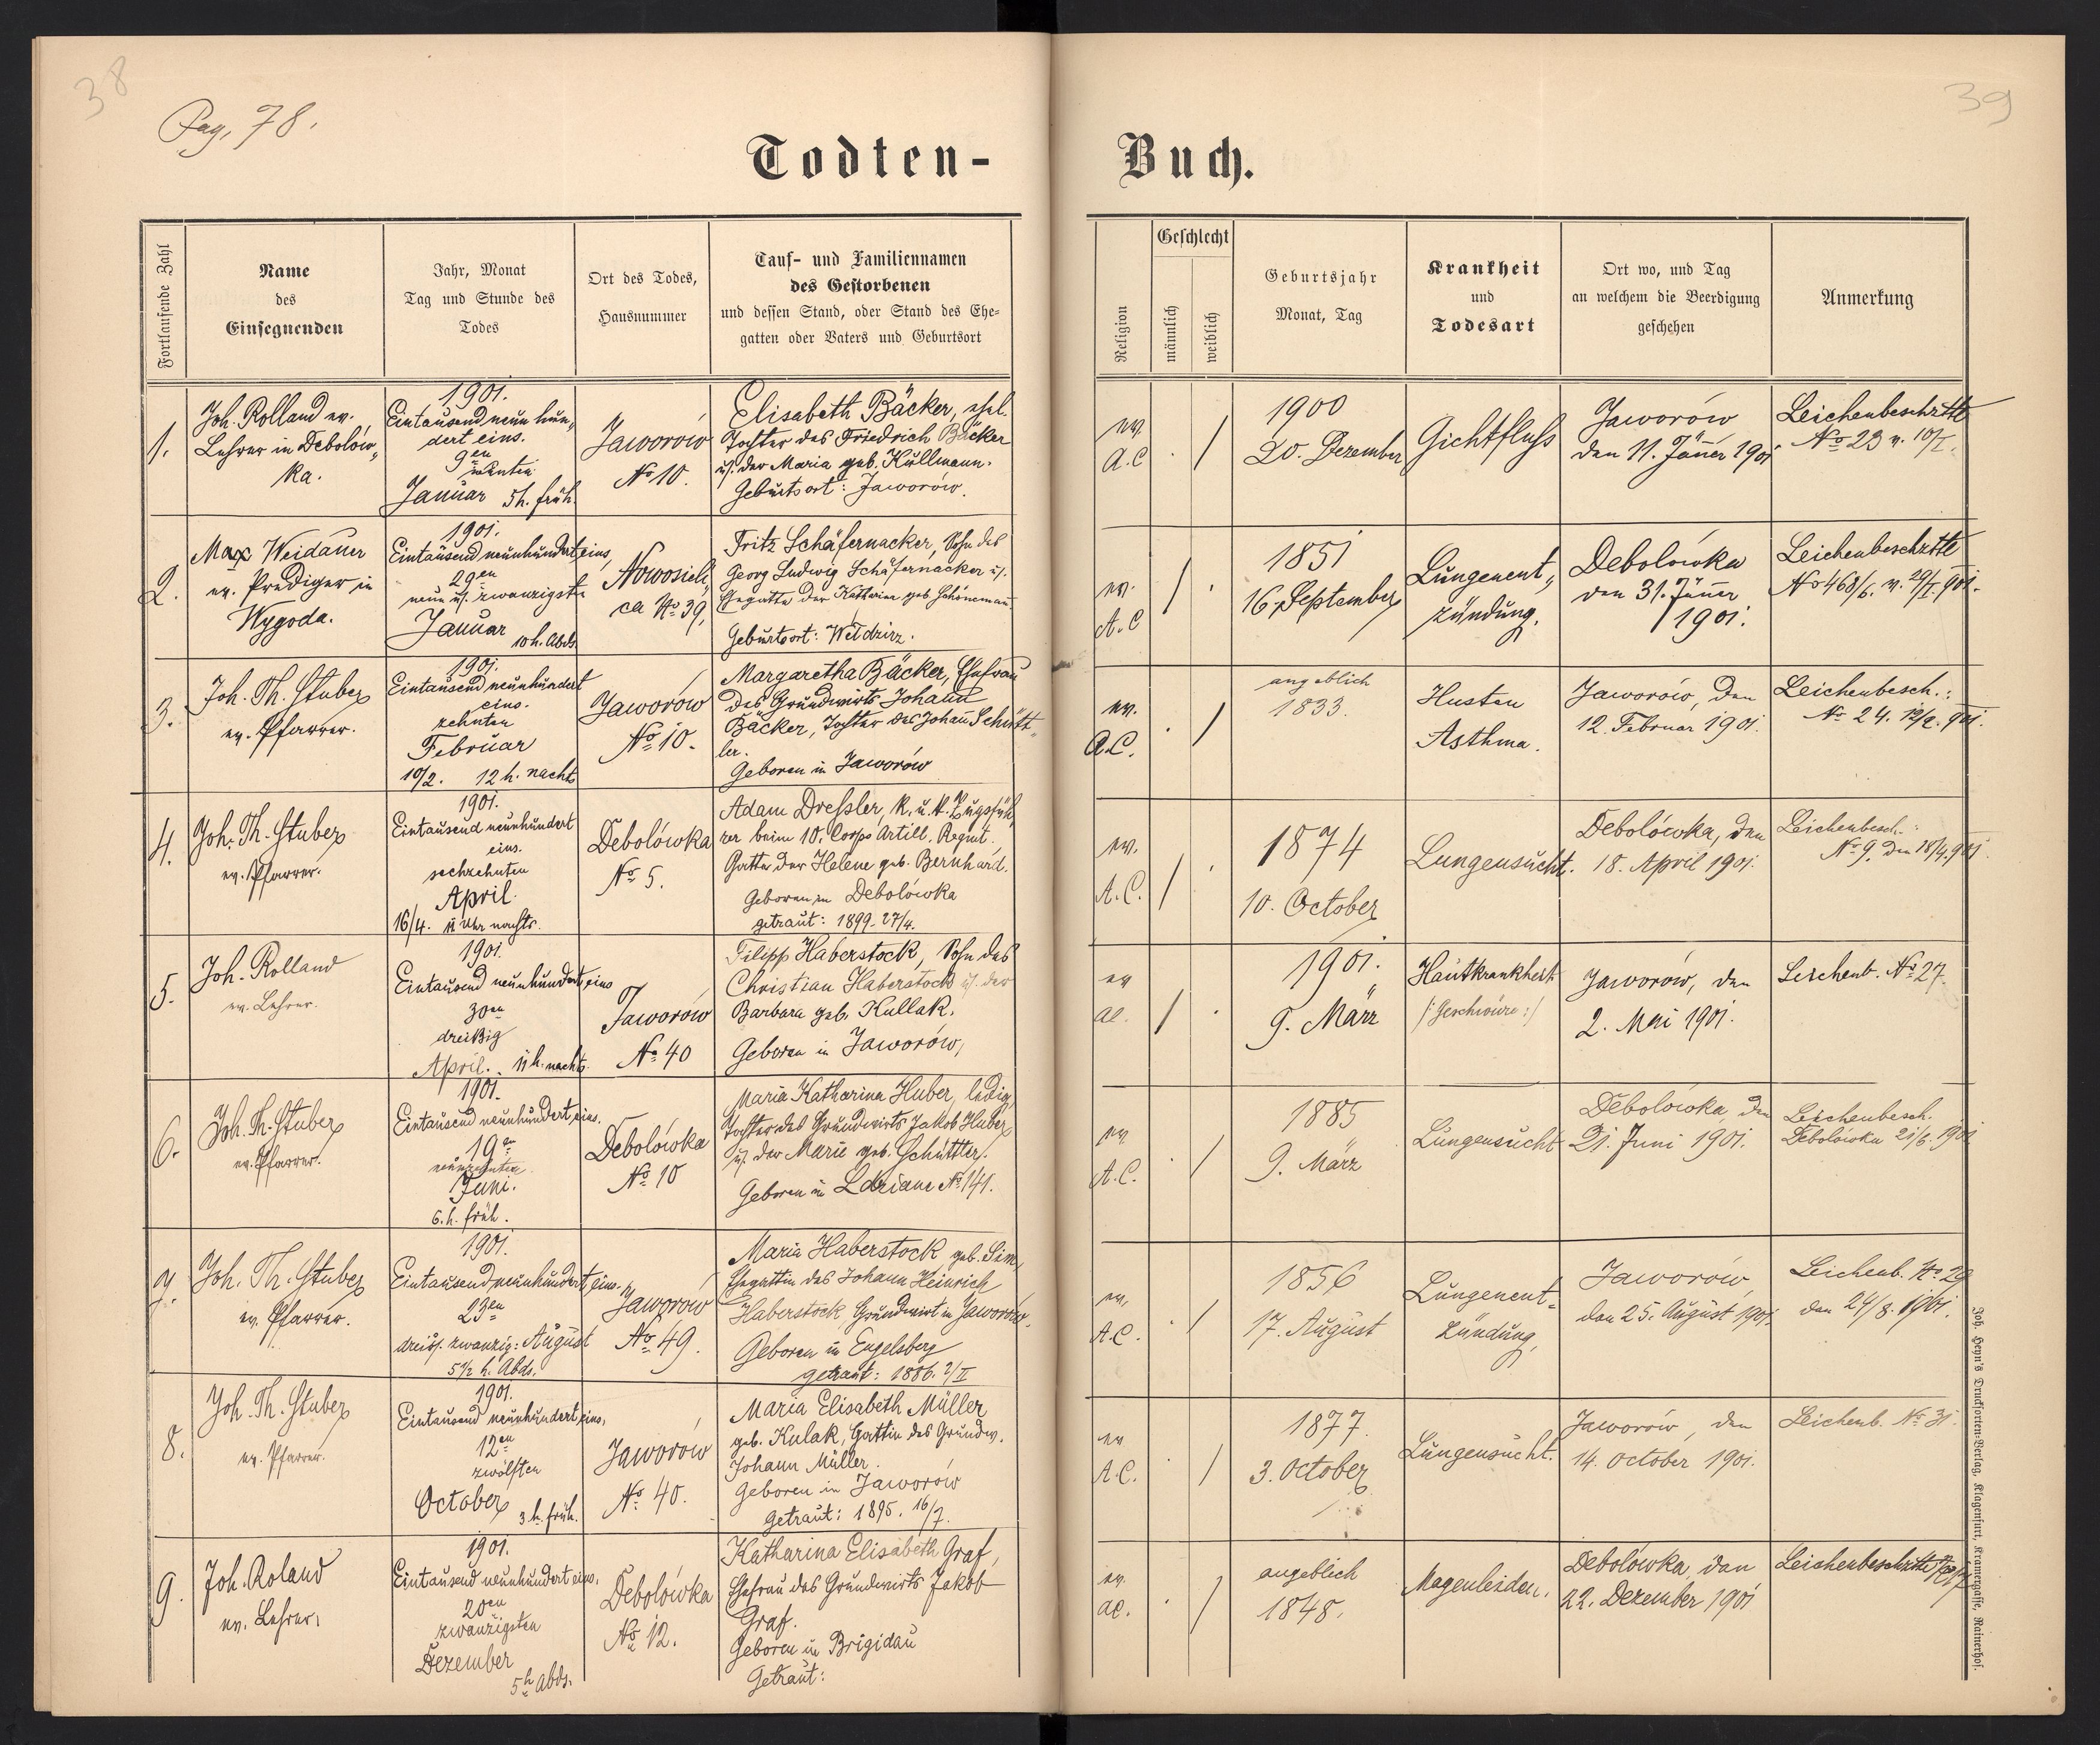 38
39
Pag. 78.
Todten-
Buch.
Fortlaufende Zahl
Name
des
Einsegnenden
Jahr, Monat
Tag und Stunde des
Todes
Ort des Todes,
Hausnummer
Tauf- und Familiennamen
des Gestorbenen
und dessen Stand, oder Stand des Ehe-
gatten oder Vaters und Geburtsort
Religion
Geschlecht
männlich
weiblich
Geburtsjahr
Monat, Tag
Krankheit
und
Todesart
Ort wo, und Tag
an welchem die Beerdigung
geschehen
Anmerkung
1.
Joh. Rolland ev.
Lehrer in Debolów„
ka.
1901.
Eintausend neun hun„
dert eins.
9en
neunten
Januar 5h. früh.
Jaworów
No 10.
Elisabeth Bäcker, ehel.
Tochter des Friedrich Bäcker
u/. der Maria geb. Kullmann.
Geburtsort: Jaworów.
ev.
A.C
. /
1900
20. Dezember
Gichtfluss
Jaworów
den 11. Jänner 1901
Leichenbeschrtte
No 23 v. 10/I.
2.
Max Weidauer
ev. Prediger in
Wygoda.
1901.
Eintausend neunhundert eins,
29en
neun u/. zwanzigsten
Januar 10 h. Abds.
Nowosieli„
ca No 39,
Fritz Schäfernacker, Sohn des
Georg Ludwig Schäfernacker u/.
Ehegatte der Katharina geb. Schönemann.
Geburtsort: Weldzirz.
ev.
A.C
/ .
1851
16. September
Lungenent„
zündung.
Debolówka
den 31. Jänner
1901.
Leichenbeschrtte
No 468/6. v. 29/I. 901.
3.
Joh. Th. Stuber
ev. Pfarrer.
1901.
Eintausend neunhundert
eins.
zehnten
Februar
10/2. 12 h. nachts
Jaworów
No 10.
Margaretha Bäcker, Ehefrau
des Grundwirts Johann
Bäcker, Tochter des Johan Schütt„
ler.
Geboren in Jaworów
ev.
A.C.
. /
angeblich
1833.
Husten
Asthma.
Jaworów, den
12. Februar 1901.
Leichenbesch.:
No 24. 12/2. 901.
4.
Joh. Th. Stuber
ev. Pfarrer.
1901.
Eintausend neunhundert
eins.
sechzehnten
April.
16/4. 11 Uhr nachts.
Debolówka
No 5.
Adam Dressler, k. u. k. Zugsfüh„
rer beim 10. Corps Artill. Regmt.
Gatte der Helene geb. Bernhard.
Geboren in Debolówka
getraut: 1899. 27/4.
ev.
A.C.
/ .
1874
10. October
Lungensucht.
Debolówka, den
18. April 1901.
Leichenbesch.:
No 9. den 18/4. 901.
5.
Joh. Rolland
ev. Lehrer.
1901.
Eintausend neunhundert eins
30en
dreißig
April. 11 h. nachts.
Jaworów
No 40
Filipp Haberstock, Sohn des
Christian Haberstock u/. der
Barbara geb. Kullak.
Geboren in Jaworów,
ev
ac.
/ .
1901.
9. März
Hautkrankheit
/: Geschwüre :/
Jaworów, den
2. Mai 1901.
Leichenb. No 27.
6.
Joh. Th. Stuber
ev. Pfarrer.
1901.
Eintausend neunhundert eins.
19en
neunzehnten
Juni.
6. h. früh.
Debolówka
No 10
Maria Katharina Huber, ledig,
Tochter des Grundwirts Jakob Huber
u/. der Marie geb. Schüttler.
Geboren in Ldziane No 141.
ev
A.C.
. /
1885
9. März
Lungensucht
Debolówka, den
21. Juni 1901.
Leichenbesch.
Debolówka 21/6. 1901
7.
Joh. Th. Stuber
ev. Pfarrer.
1901.
Eintausend neunhundert eins.
23en
drei u/. zwanzig: August
5½ h. Abds.
Jaworów
No 49.
Maria Haberstock geb. Sim,
Ehegattin des Johann Heinrich
Haberstock Grundwirt in Jaworów.
Geboren in Engelsberg
getraut: 1886. 2/II
ev.
A.C.
. /
1856
17. August
Lungenent-
zündung,
Jaworów,
den 25. August 1901.
Leichenb. No 29
den 24/8. 1901.
8.
Joh. Th. Stuber
ev. Pfarrer.
1901.
Eintausend neunhundert eins,
12en
zwölften
October 3 h. früh.
Jaworów
No 40.
Maria Elisabeth Müller
geb. Kulak, Gattin des Grundw.
Johann Müller.
Geboren in Jaworów
Getraut: 1895. 16/7.
ev
A.C.
. /
1877.
3. October
Lungensucht.
Jaworów, den
14. October 1901.
Leichenb. No 31.
9.
Joh. Roland
ev. Lehrer,
1901.
Eintausend neunhundert eins,
20en
zwanzigsten
Dezember
5h Abds.
Debolówka
No 12.
Katharina Elisabeth Graf,
Ehefrau des Grundwirts Jakob
Graf.
Geboren in Brigidau
Getraut:
ev.
ac.
. /
angeblich
1848.
Magenleiden.
Debolówka, den
22. Dezember 1901
Leichenbeschrtte
Joh. Heyn's Drucksorten-Verlag, Klagenfurt, Kramergasse, Rainerhof.